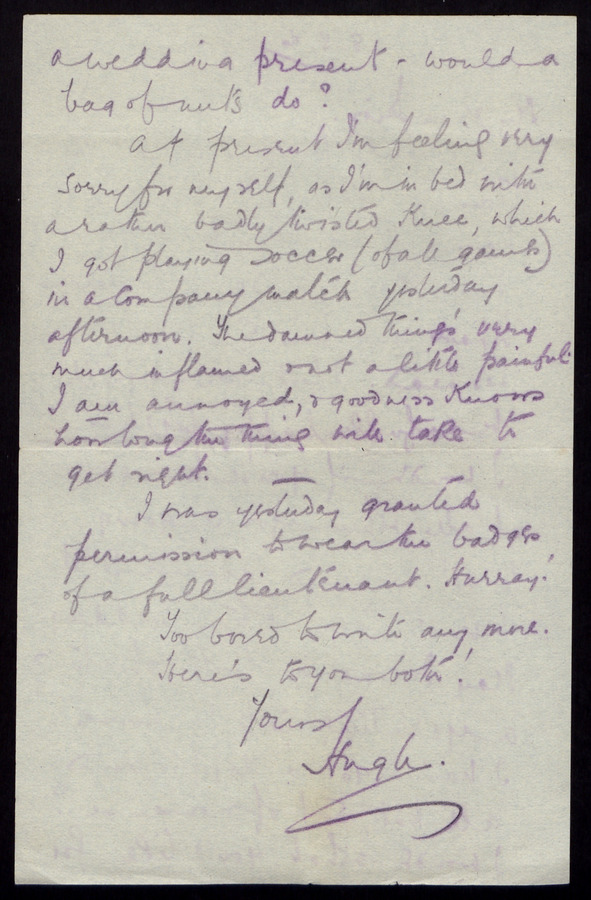 a wedding present - would a
bag of nuts do?
At present I'm feeling very
sorry for myself, as I'm in bed with
a rather badly twisted knee, which
I got playing soccer (of all games)
in a Company match yesterday
afternoon. The damned thing's very
much inflamed & not a little painful.
I am annoyed, & goodness knows
how long the thing will take to
get right.
I was yesterday granted
permission to wear the badges
of a full lieutenant. Hurray!
Too bored to write any more.
Here's to you both!
Yours
Hugh.